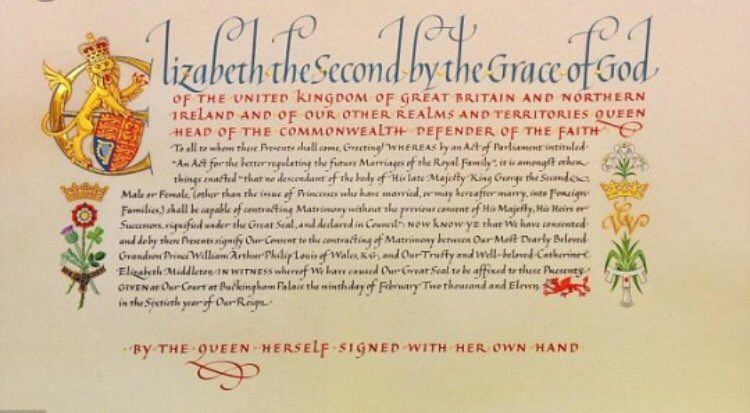 Elizabeth the Second by the Grace of God
OF THE UNITED KINGDOM OF GREAT BRITAIN AND NORTHERN
IRELAND AND OF OUR OTHER REALMS AND TERRITORIES QUEEN
HEAD OF THE COMMONWEALTH DEFENDER OF THE FAITH
To all to whom these Presents shall come, Greeting! WHEREAS by an Act of Parliament intituled
"An Act for the better regulating the future Marriages of the Royal Family", it is amongst other
things enacted "that no descendant of the body of His late Majesty King George the Second,
Male or Female, (other than the issue of Princesses who have married, or may hereafter marry, into Foreign
Families,) shall be capable of contracting Matrimony without the previous consent of His Majesty, His Heirs or
Successors, signified under the Great Seal, and declared in Council": NOW KNOW YE that We have consented
and do by these Presents signify Our Consent to the contracting of Matrimony between Our Most Dearly Beloved
Grandson Prince William Arthur Philip Louis of Wales, K.G., and Our Trusty and Well-beloved Catherine
Elizabeth Middleton. IN WITNESS whereof We have caused Our Great Seal to be affixed to these Presents.
GIVEN at Our Court at Buckingham Palace the ninth day of February Two thousand and Eleven
in the Sixtieth year of Our Reign.
BY THE QUEEN HERSELF SIGNED WITH HER OWN HAND